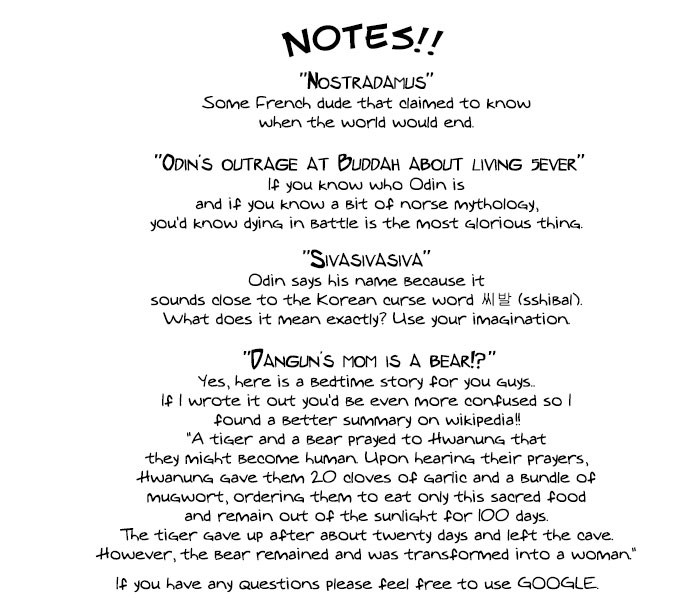 NOTES!!
"Nostradamus"
Some French dude that claimed to know
when the world would end.
"Odin's outrage at Buddah about living 5ever"
If you know who Odin is
and if you know a bit of norse mythology,
you'd know dying in battle is the most glorious thing.
"Sivasivasiva"
Odin says his name because it
sounds close to the Korean curse word 씨발 (sshibal).
What does it mean exactly? Use your imagination.
"Dangun's mom is a bear!?"
Yes, here is a bedtime story for you guys..
If I wrote it out you'd be even more confused so I
found a better summary on wikipedia!!
"A tiger and a bear prayed to Hwanung that
they might become human. Upon hearing their prayers,
Hwanung gave them 20 cloves of garlic and a bundle of
mugwort, ordering them to eat only this sacred food
and remain out of the sunlight for 100 days.
The tiger gave up after about twenty days and left the cave.
However, the bear remained and was transformed into a woman."
If you have any questions please feel free to use GOOGLE.